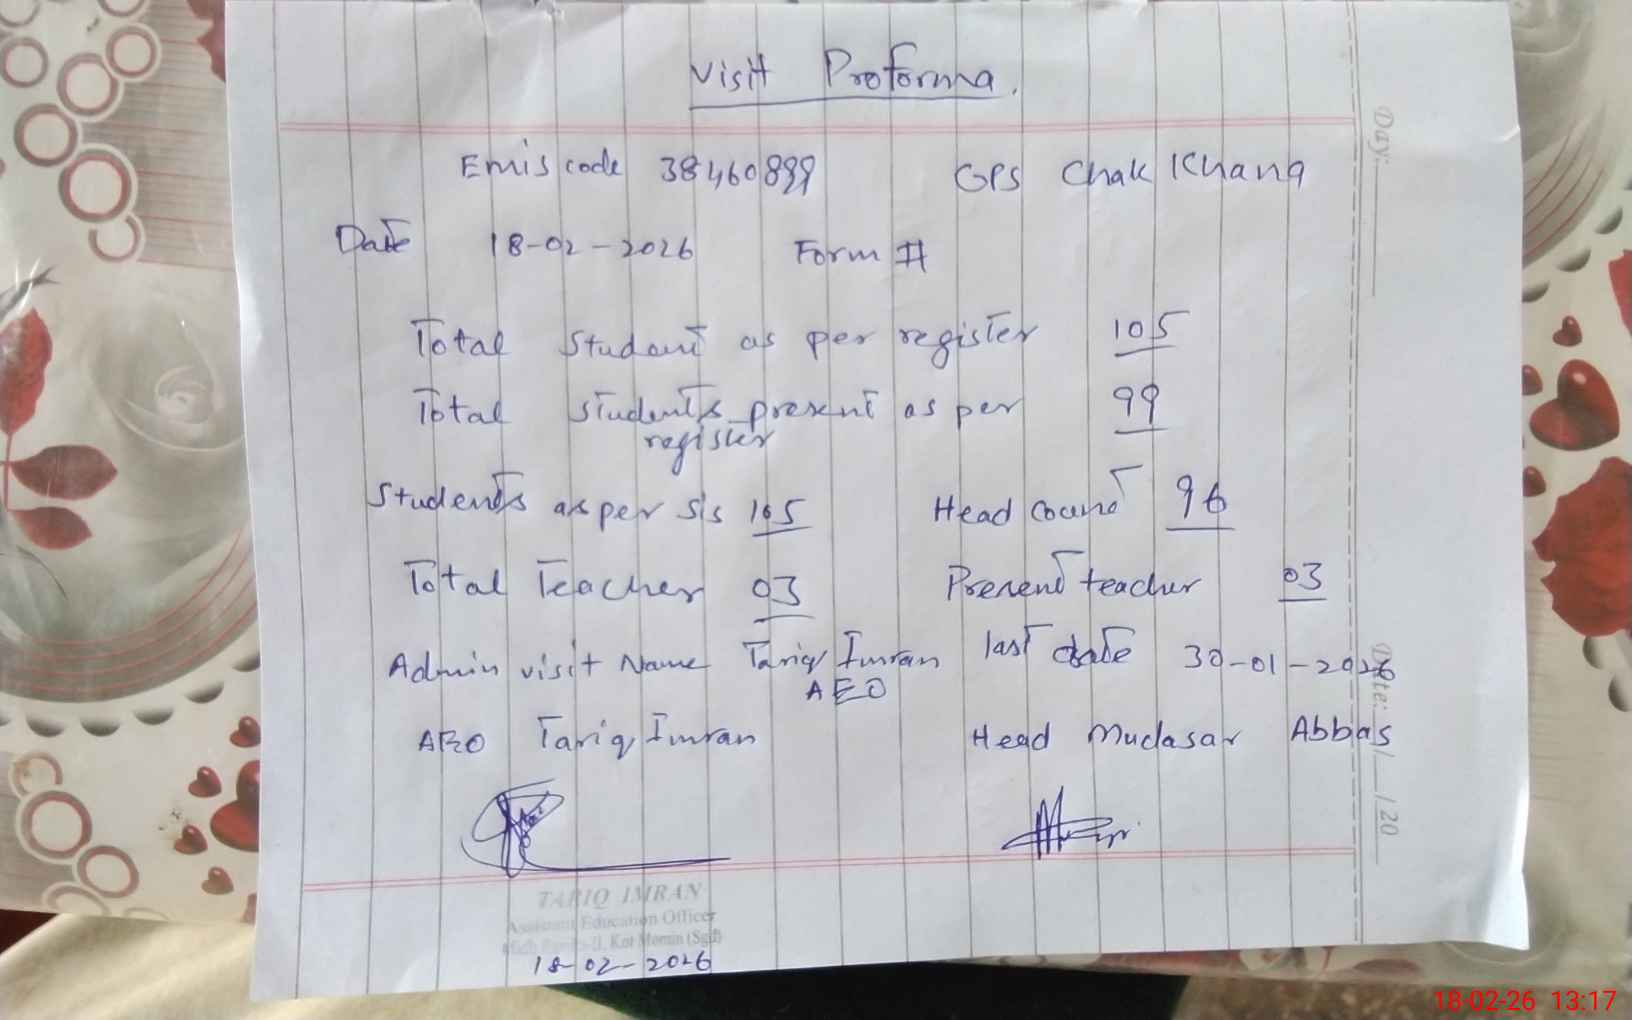 Visit Proforma.
Emis code 38460899 GPS Chak Khana
Date 18-02-2026 Form #
Total Student as per register 105
Total students present as per 99
register
Students as per sis 105 Head count 96
Total Teacher 03 Present teacher 03
Admin visit Name Tariq Imran last date 30-01-2026
AEO
AEO Tariq Imran Head Mudasar Abbas
TARIQ IMRAN
Assistant Education Officer
Kot Momin (Sgd)
18-02-2026
Day:
Date: / /20
18-02-26 13:17